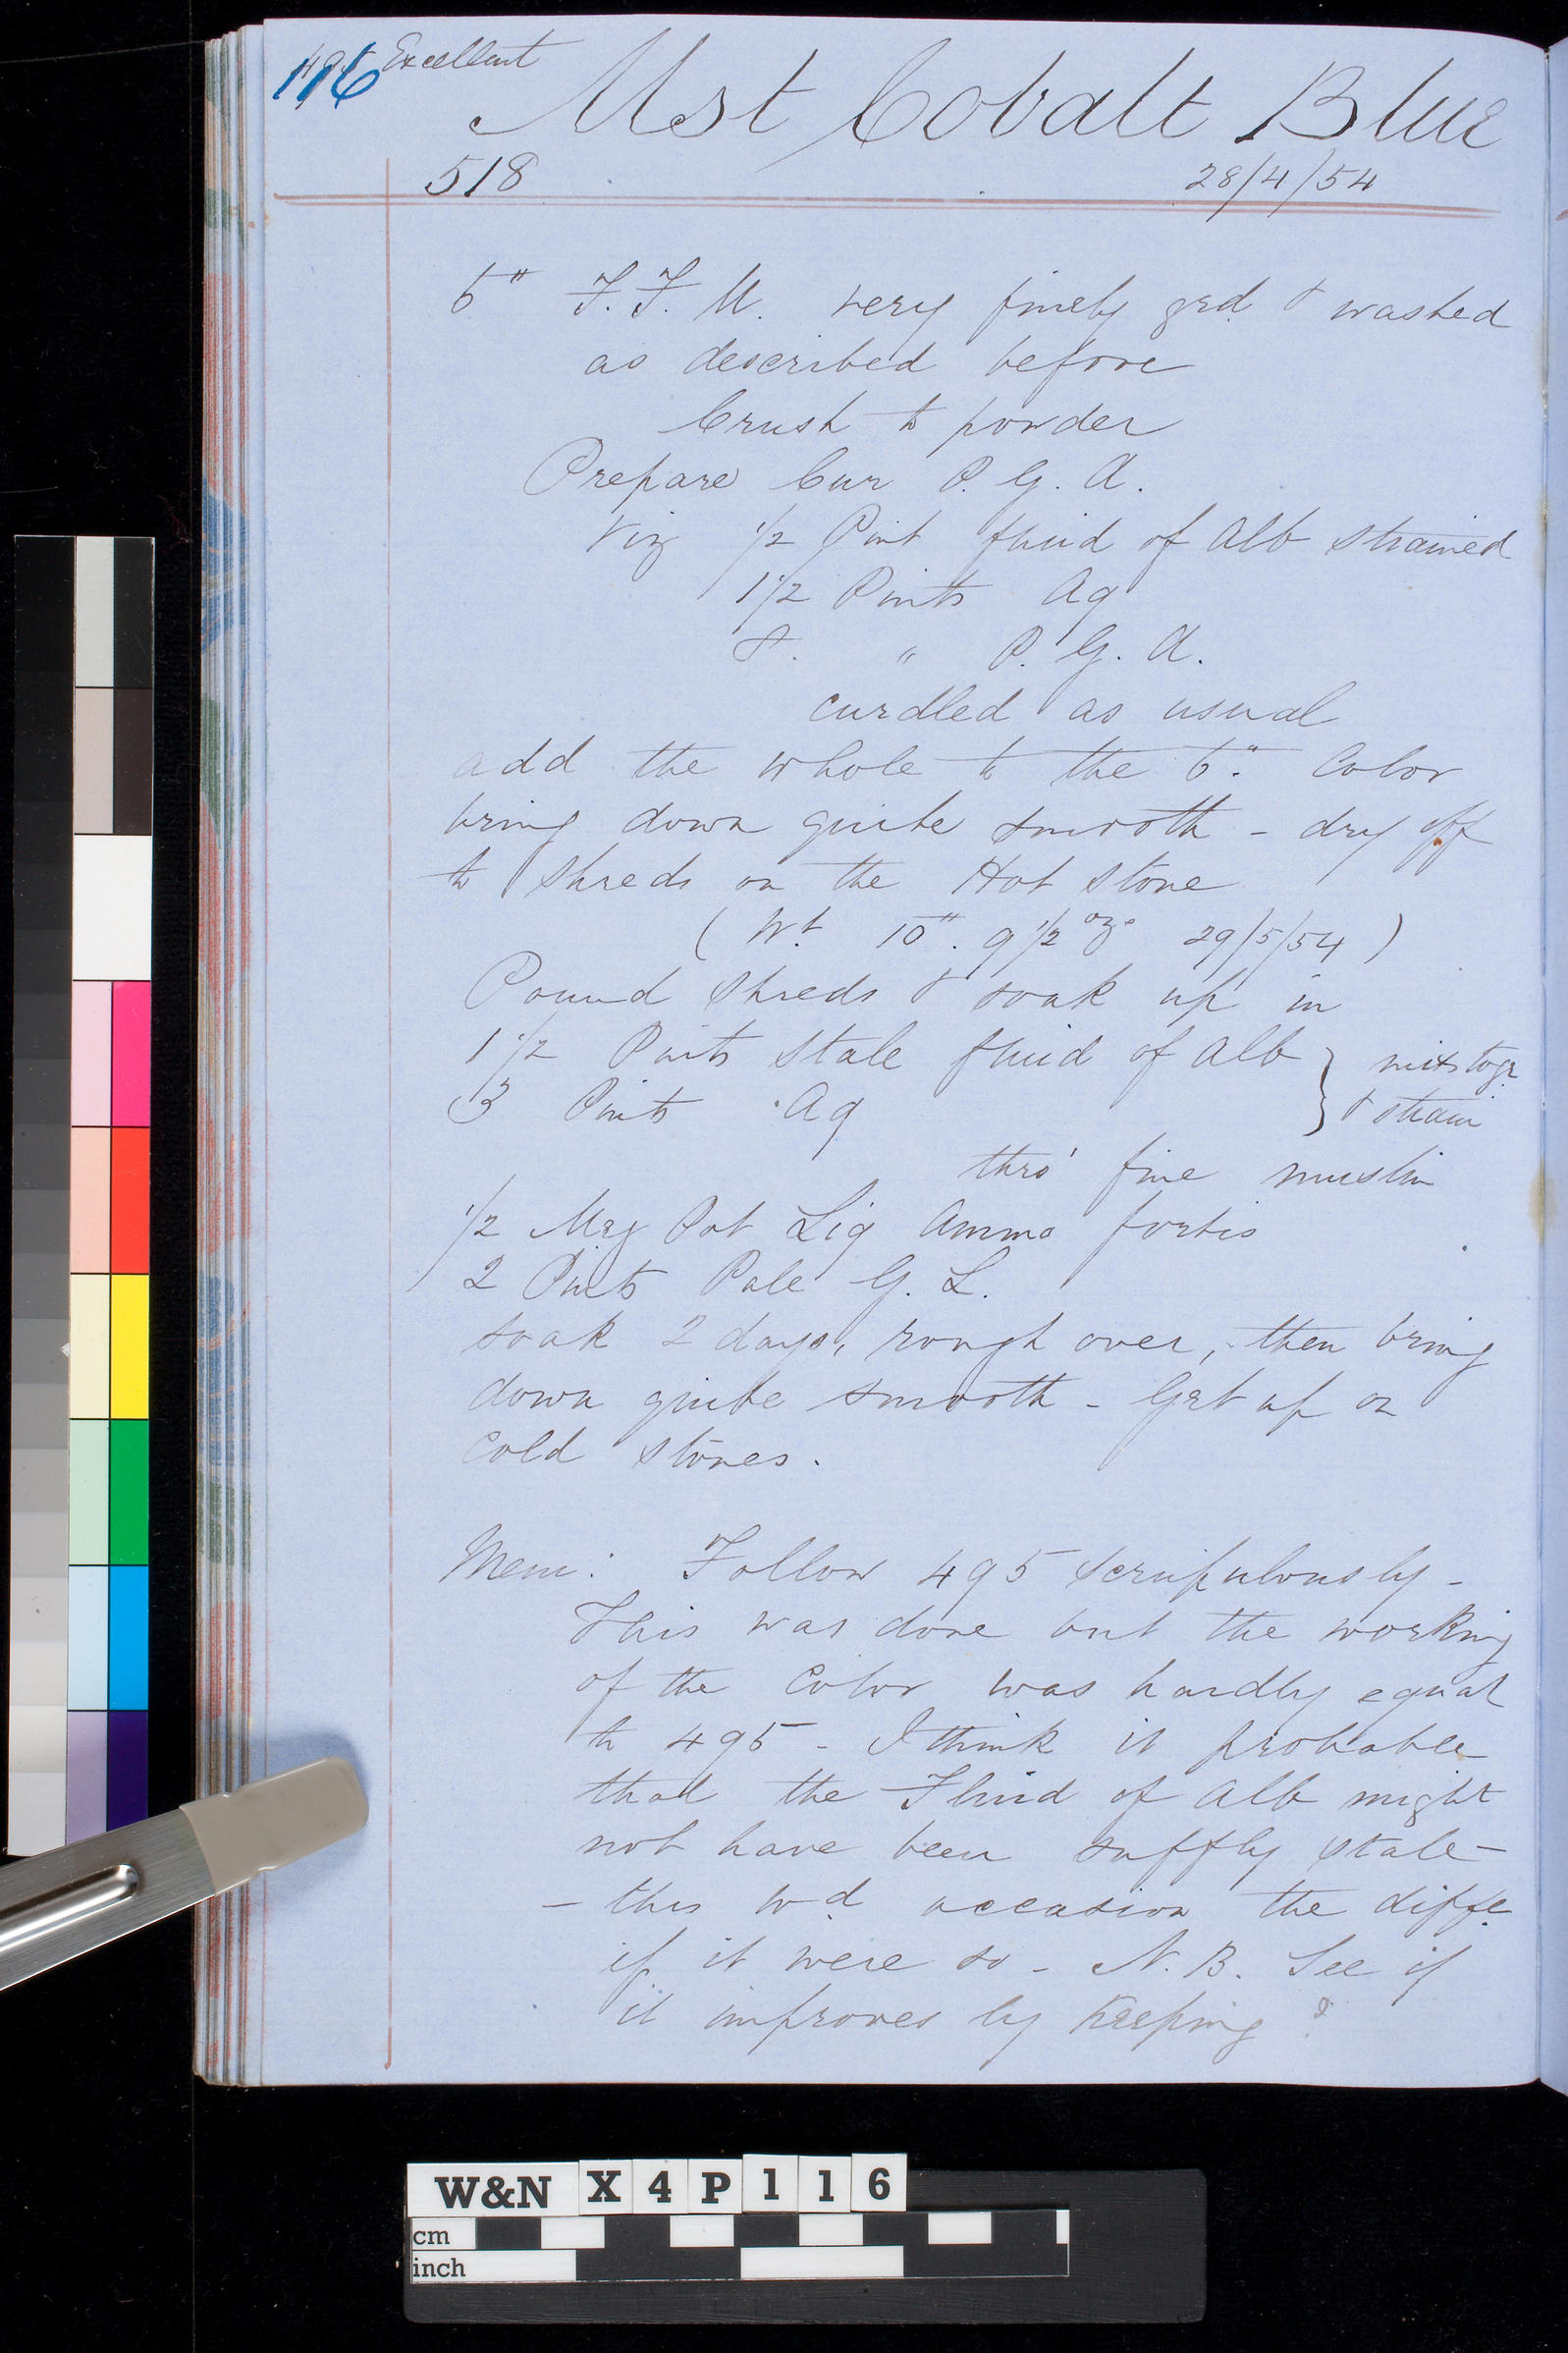 116 Excellent
Mst Cobalt Blue
518 28/4/54
6" F.F.U. very finely grd & washed
as described before
Crush to powder
Prepare Cur P. G. A.
viz 1/2 Pint fluid of Alb strained
1 1/2 Pints Aq
& " P. G. A.
curdled as usual
add the whole to the 6". Color
bring down quite smooth - dry off
to shreds on the Hot stone
( Wt. 10". 9 1/2 ozs 29/5/54 )
Pound shreds & soak up in
1 1/2 Pints Stale fluid of Alb } mix togr
3 Pints Aq } & strain
thro' fine muslin
1/2 Meg Pot Liq Ammo fortis
2 Pints Pale G. L.
soak 2 days, rough over, then bring
down quite smooth - Get up on
cold stones.
Mem: Follow 495 scrupulously -
This was done but the working
of the color was hardly equal
to 495 - I think it probable
that the Fluid of Alb might
not have been suffly stale -
- this wd occasion the diffe
if it were so - N.B. See if
it improves by Keeping ?
W&N X 4 P 1 1 6
cm
inch